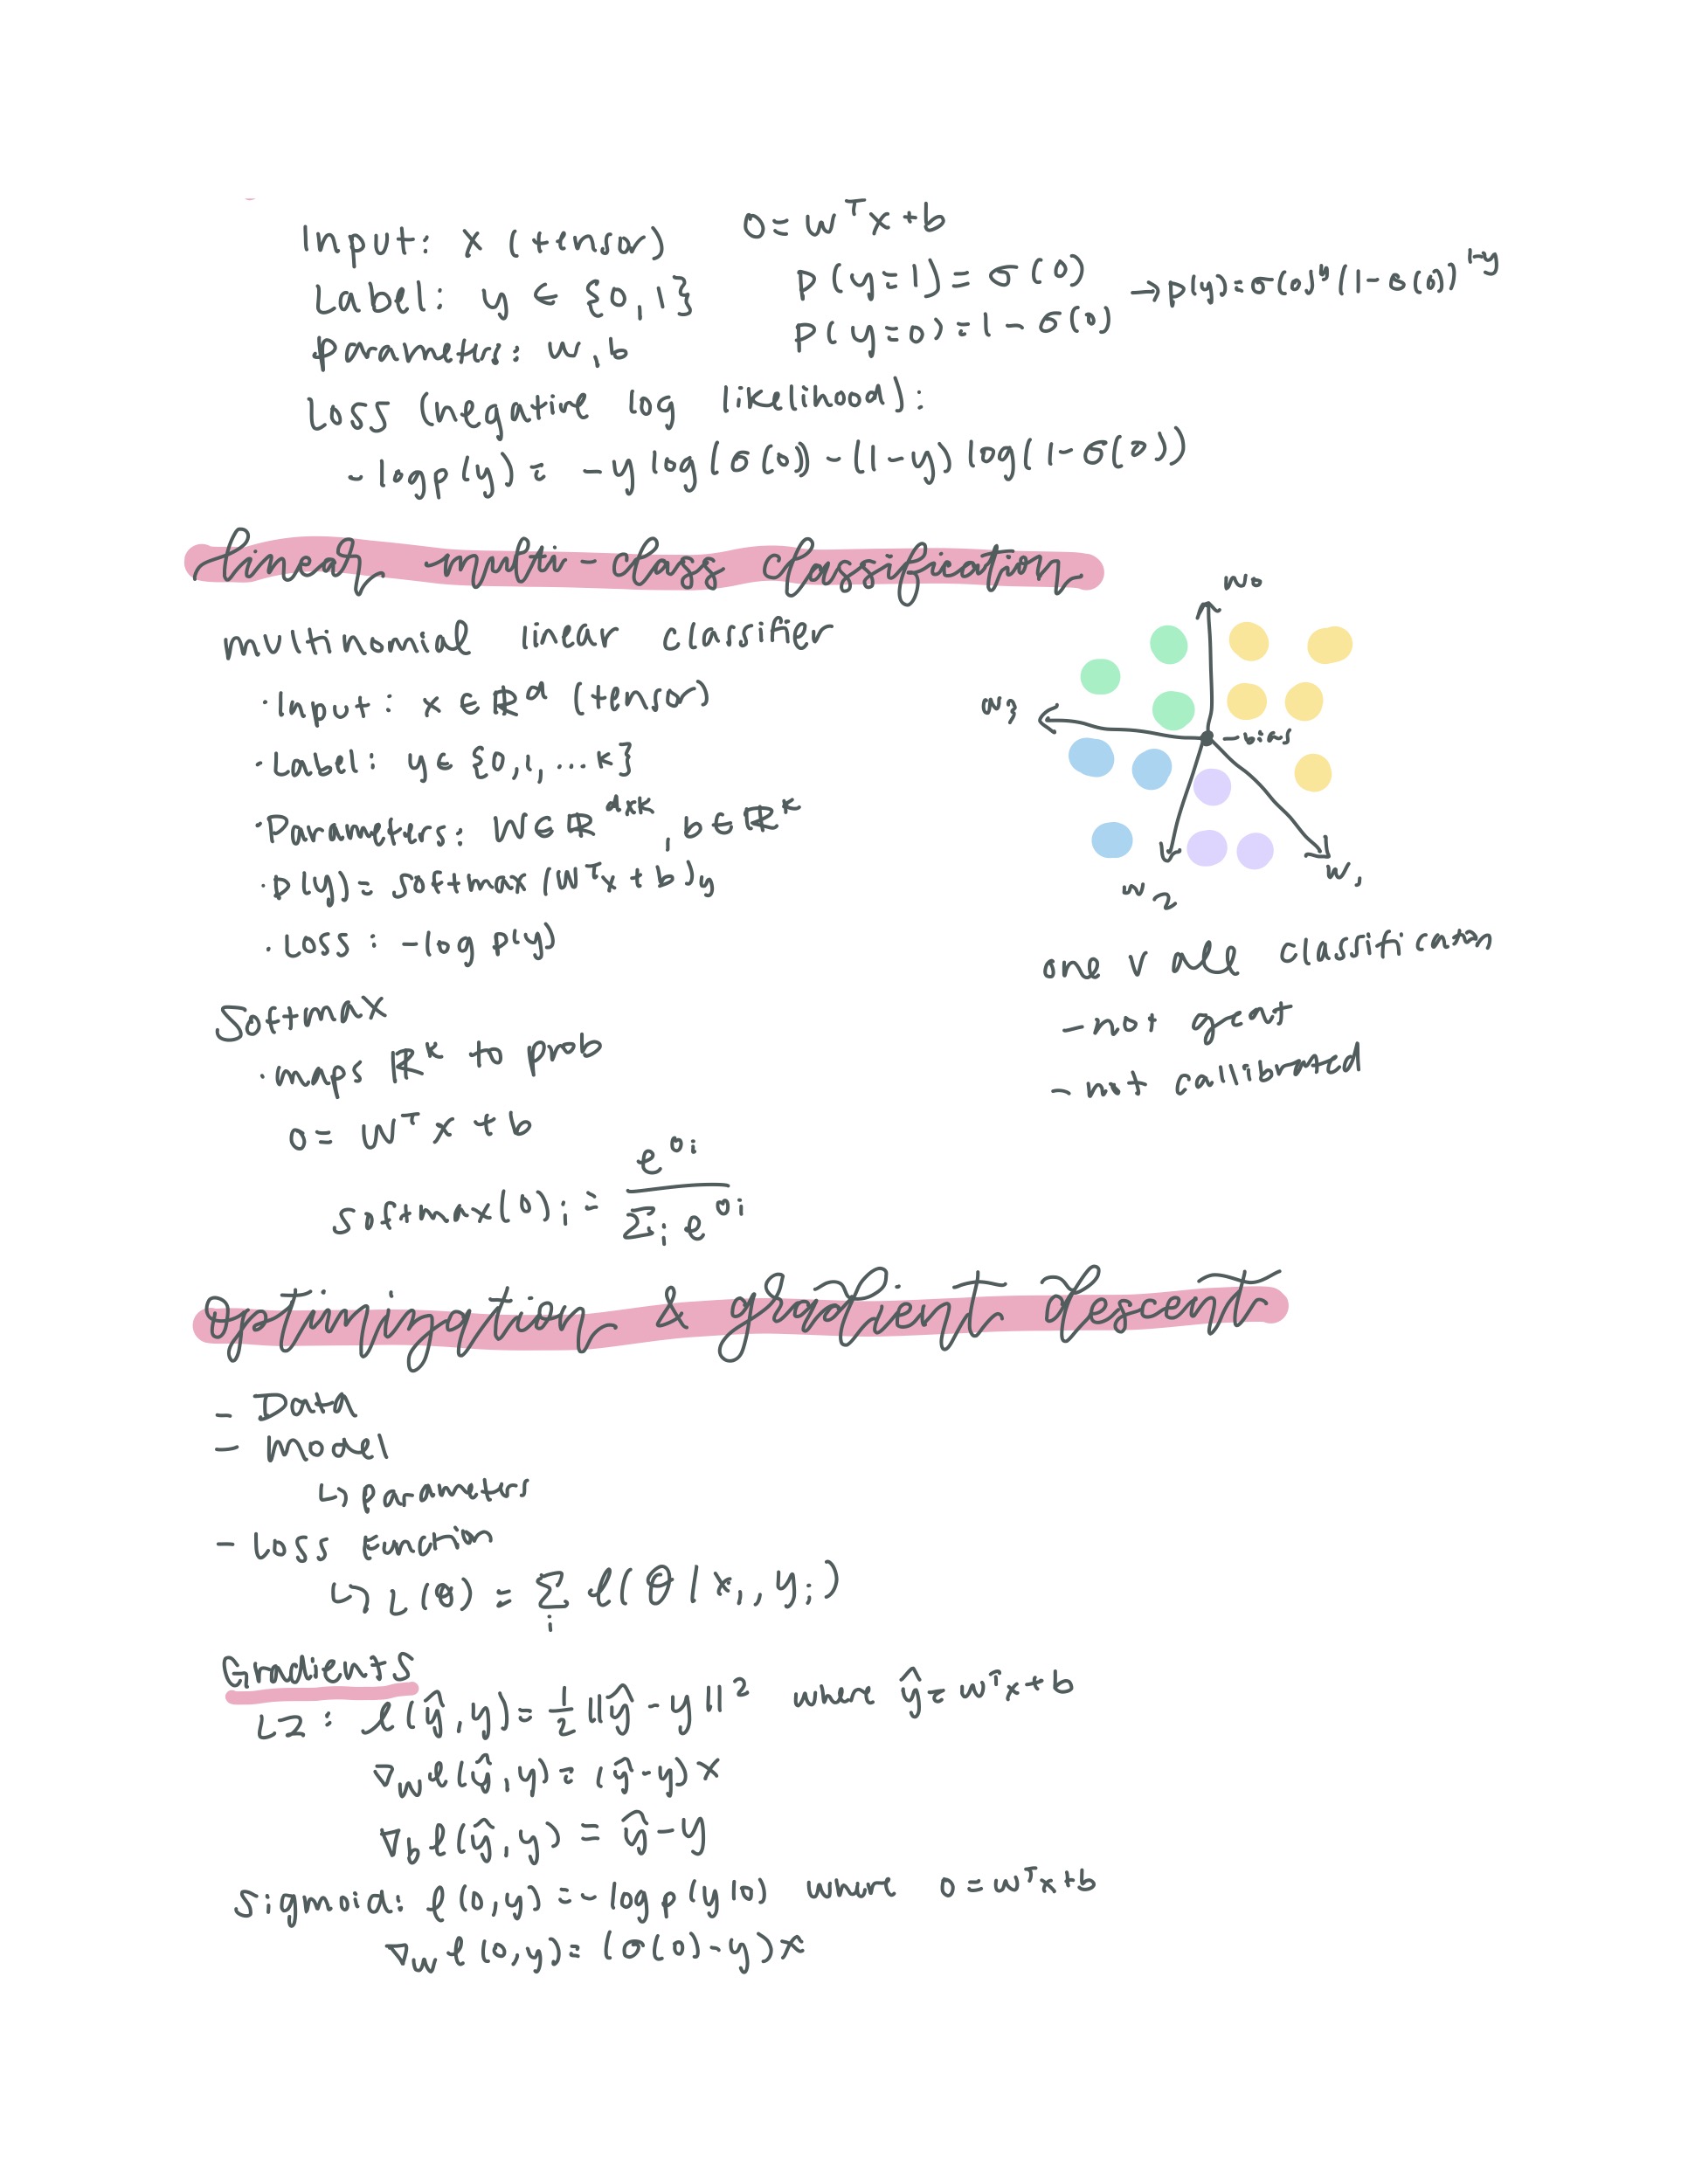 Input: x (tensor)
o = w^T x + b
Label: y ∈ {0,1}
p(y=1) = σ(o)
→ p(y) = σ(o)^y (1-σ(o))^1-y
p(y=0) = 1 - σ(o)
parameters: w, b
Loss (negative log likelihood):
- log p(y) = -y log(σ(o)) - (1-y) log(1-σ(o))
Linear multi-class classification
multinomial linear classifier
·Input: x ∈ ℝ^d (tensor)
·Label: y ∈ {0,1,...k}
·Parameters: W ∈ ℝ^dxk, b ∈ ℝ^k
·p(y) = softmax (W^T x + b)_y
·Loss: -log p(y)
w_0
w_3
-bias
w_1
w_2
one v all classification
- not great
- not callibrated
Softmax
·maps ℝ^k to prob
o = W^T x + b
softmax(o)_i = e^o_i / Σ_i e^o_i
Optimization & gradient descent
- Data
- Model
↳ parameters
- Loss Function
↳ L(θ) = Σ_i ℓ(θ | x_i, y_i)
Gradients
L2: ℓ(ŷ, y) = 1/2 ||ŷ - y||^2 where ŷ = w^T x + b
∇_w ℓ(ŷ, y) = (ŷ - y) x
∇_b ℓ(ŷ, y) = ŷ - y
Sigmoid: ℓ(o, y) = - log p(y|o) where o = w^T x + b
∇_w ℓ(o, y) = (σ(o) - y) x